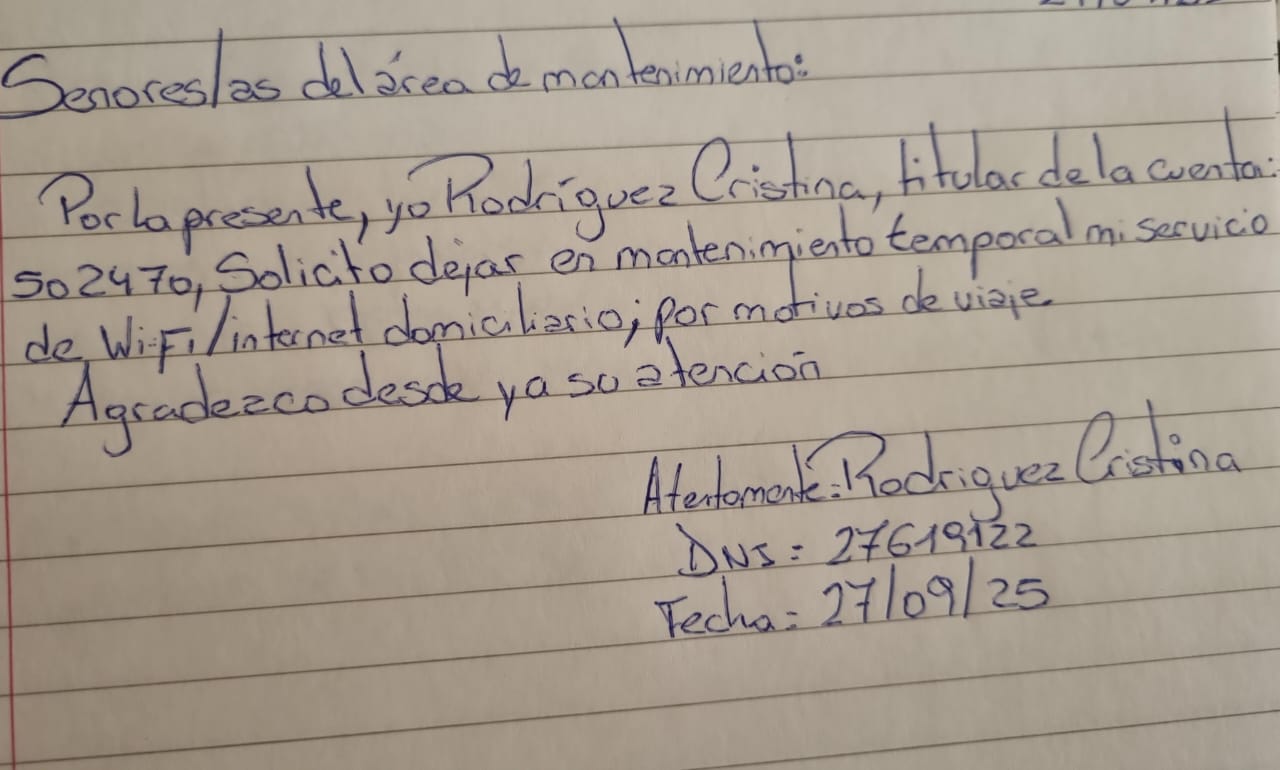 Senores/as del área de mantenimiento:
Por la presente, yo Rodríguez Cristina, titular de la cuenta:
502470, Solicito dejar en mantenimiento temporal mi servicio
de Wi-Fi/internet domiciliario; por motivos de viaje.
Agradezco desde ya su atención
Atentamente: Rodriguez Cristina
DNI = 27619122
Fecha = 27/09/25